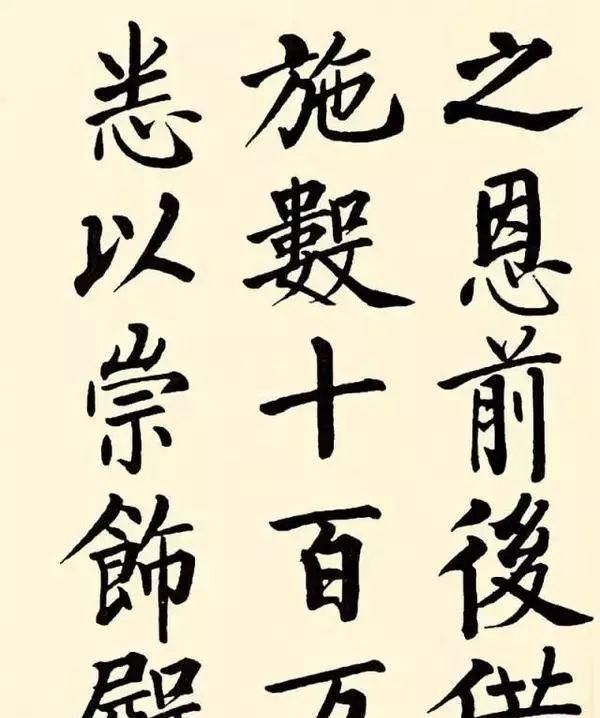 之恩前後
施數十百万
悉以崇飾殿